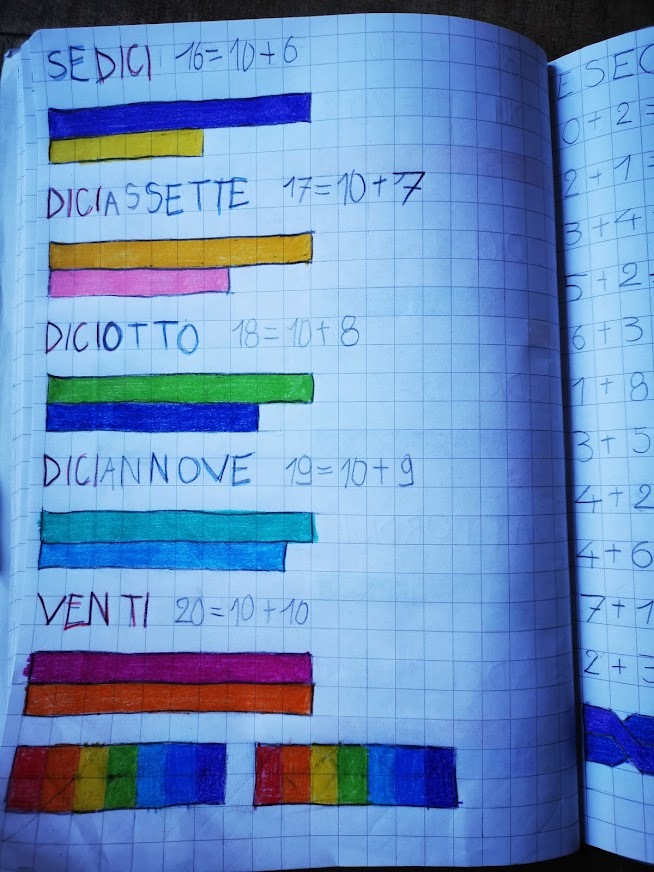 SEDICI 16=10+6
DICIASSETTE 17=10+7
DICIOTTO 18=10+8
DICIANNOVE 19=10+9
VENTI 20=10+10
ESEC
0+2=
2+1=
3+4
5+2
6+3
1+8
3+5
4+2
4+6
7+1
2+3